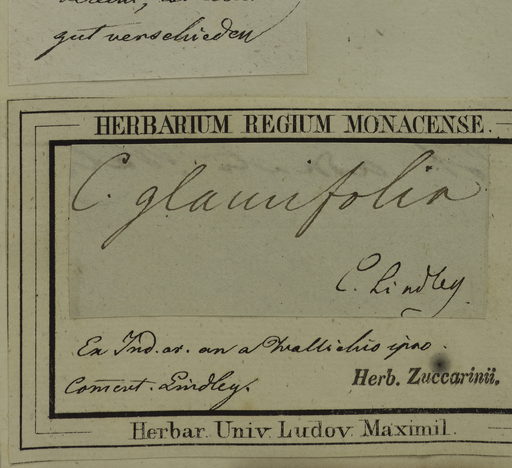 gut verschieden
HERBARIUM REGIUM MONACENSE.
C. glaucifolia
C. Lindley
Ex Ind. or. an a Wallichio ipso.
Coment. Lindley.
Herb. Zuccarinii.
Herbar. Univ. Ludov. Maximil.